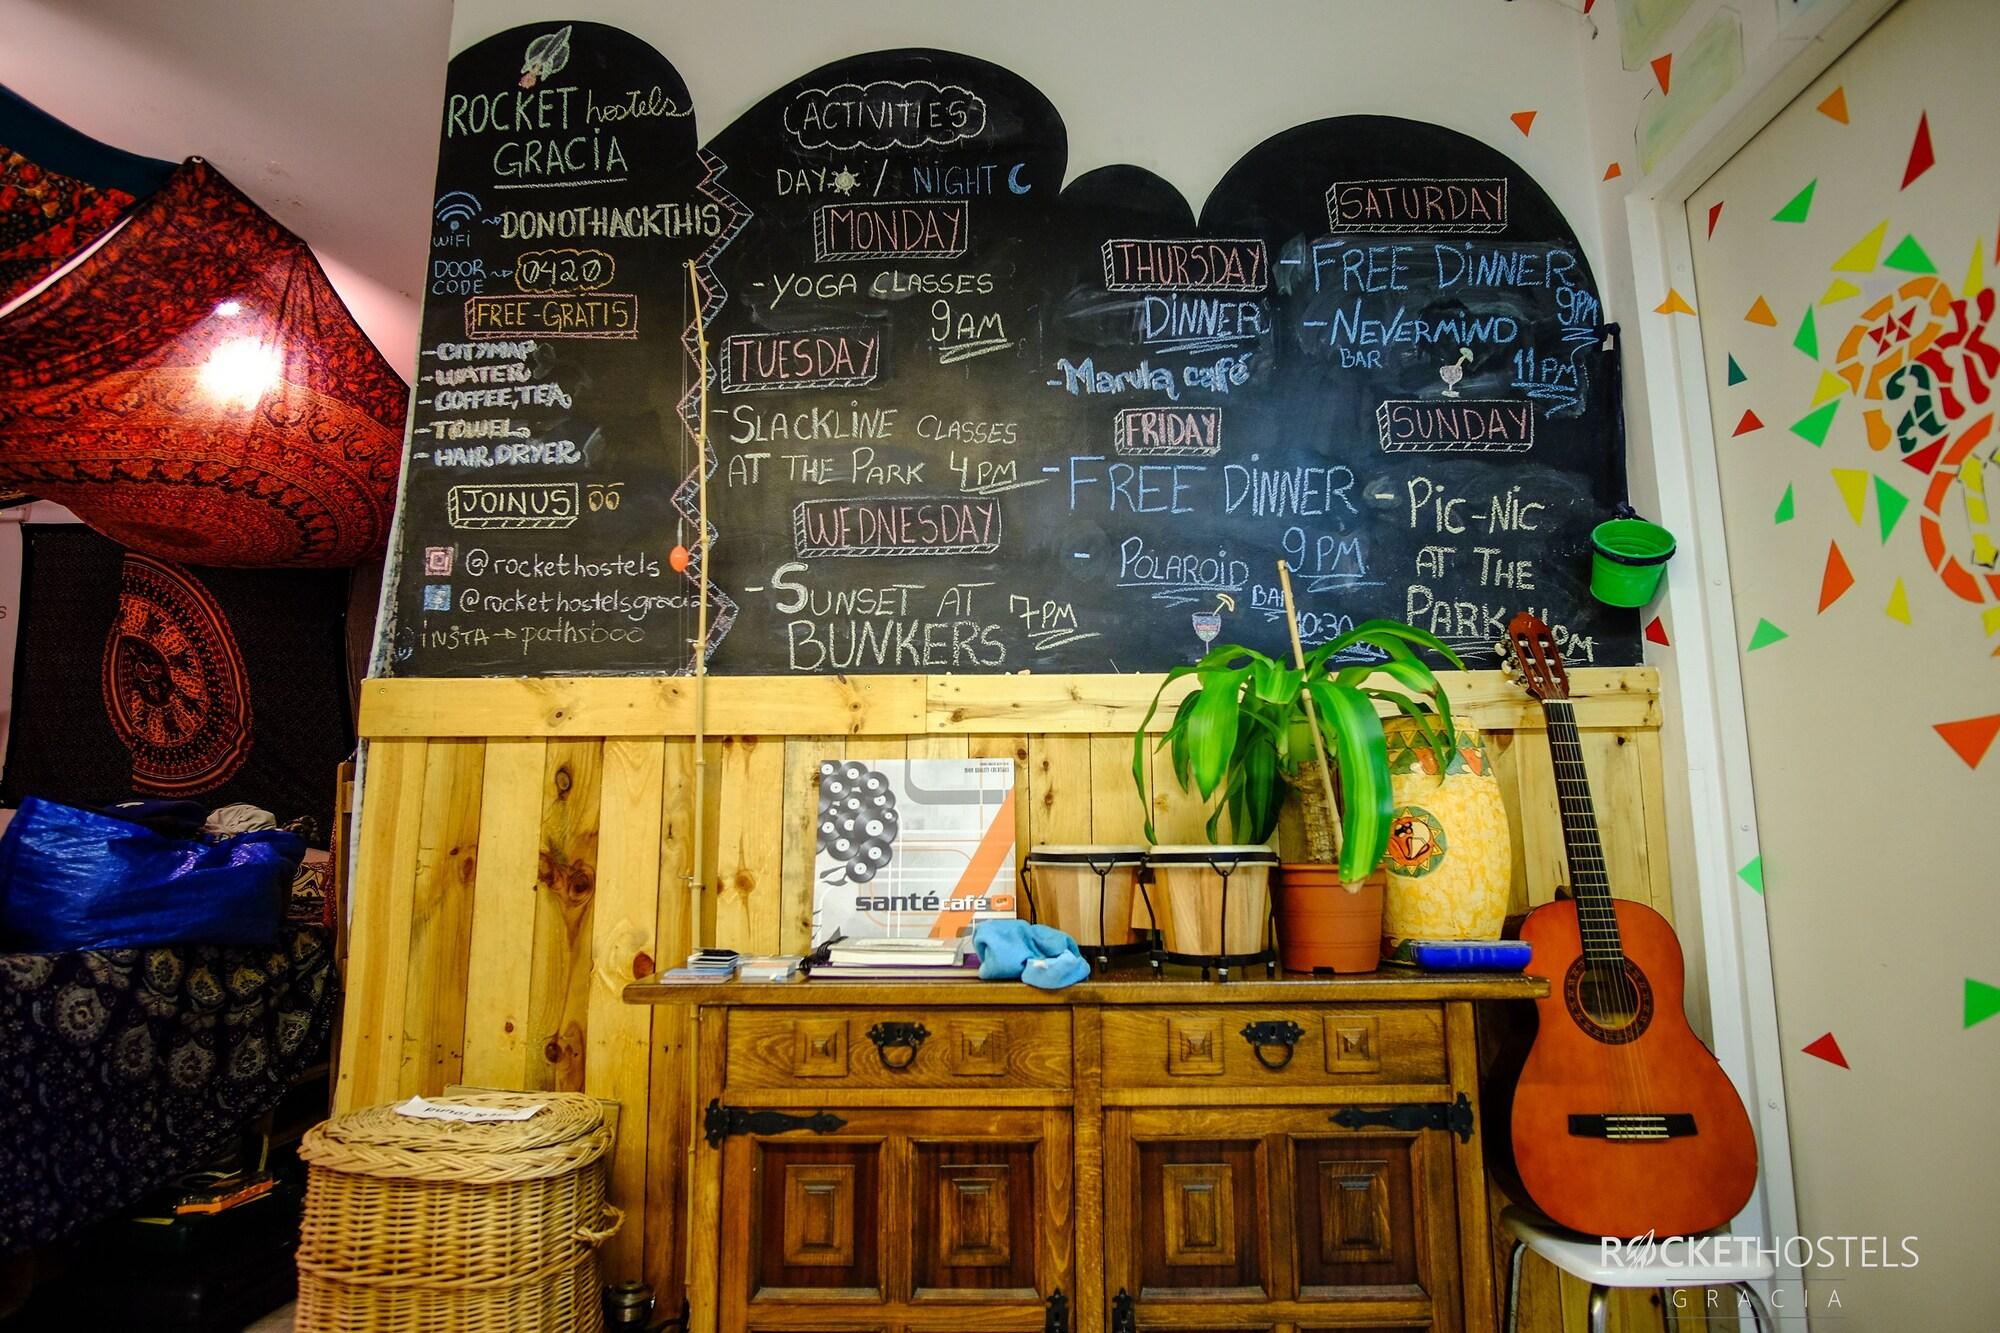 ROCKET hostels
GRACIA
WIFI DONOTHACKTHIS
DOOR
CODE 0420
FREE-GRATIS
-CITYMAP
-WATER
-COFFEE, TEA
-TOWEL
-HAIR DRYER
JOIN US
@rockethostels
@rockethostelsgracia
INSTA → pathsboo
ACTIVITIES
DAY / NIGHT
MONDAY
-YOGA CLASSES
9AM
TUESDAY
-SLACKLINE CLASSES
AT THE PARK 4PM
WEDNESDAY
-SUNSET AT
BUNKERS 7PM
THURSDAY
DINNER
-Marula café
FRIDAY
-FREE DINNER
9PM
-POLAROID
BAR
10:30
SATURDAY
-FREE DINNER
9PM
-NEVERMIND
BAR
11PM
SUNDAY
-PIC-NIC
AT THE
PARK
santécafé
ROCKETHOSTELS
GRACIA